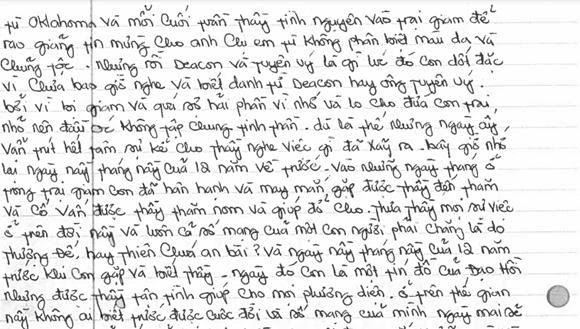 từ Oklahoma và mỗi cuối tuần thầy tình nguyện vào trại giam để
rao giảng tin mừng cho anh chị em tù không phân biệt màu da và
chủng tộc. Nhưng rồi Deacon và tuyên uý là gì lúc đó con dốt đặc
vì chưa bao giờ nghe và biết danh từ Deacon hay ông tuyên uý.
bởi vì bị giam và quá sợ hãi phần vì nhớ và lo cho đứa con trai
nhỏ nên đầu óc không tập chung tinh thần. dù là thế nhưng ngày ấy
vẫn trút hết tâm sự kể cho thầy nghe việc gì đã xảy ra. bây giờ nhớ
lại ngày này tháng này của 12 năm về trước. vào những ngày tháng ở
trong trại giam con đã hân hạnh và may mắn gặp được thầy đến thăm
và cố vấn được thầy thăm nom và giúp đở cho. Thưa thầy mọi sự việc
ở trên đời này và luôn cả số mang của một con người phải chăng là do
thượng đế, hay thiên chúa an bài? Và ngày này tháng này của 12 năm
trước khi con gặp và biết thầy. ngày đó con là một tín đồ của Đạo Hồi
nhưng được thầy tận tình giúp cho mọi phương diện. ở trên thế gian
này không ai biết trước được cuộc đời và số mang của mình ngày mai sẽ